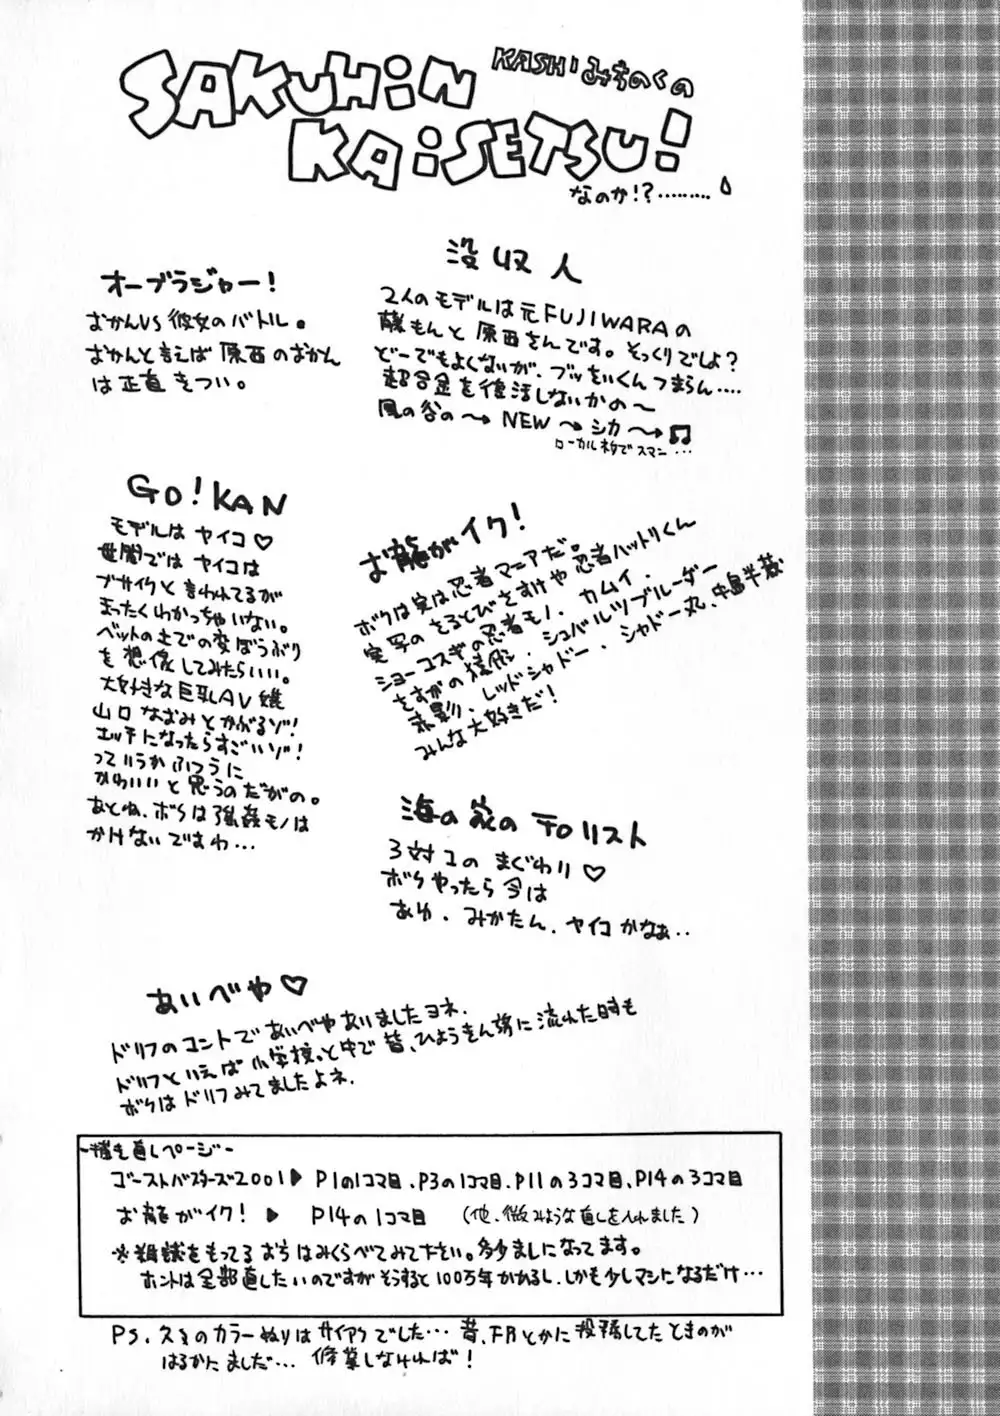 SAKUHiN
KASHIみちのくの
KAiSETSU!
なのか!?………
没収人
2人のモデルは元FUJIWARAの
藤もんと原西さんです。そっくりでしよ?
どーでもよくないが、ブッちぃくんつまらん....
超合金を復活しないかの〜
風の谷の〜→NEW〜シカ〜→♫
ローカルネタでスマン…
オーブラジャー!
おかんVS彼女のバトル。
おかんと言えば原西のおかん
は正直きつい。
GO!KAN
モデルはヤイコ♡
世間ではヤイコは
ブサイクと言われてるが
まったくわかっちゃいない。
ベットの上での変ぼうぶり
を想像してみたらいい。
大好きな巨乳AV嬢
山口なおみとかがるゾ!
エッチになったらすごいゾ!
っていうかふつうに
かわいいと思うのだがの。
あとね、ボクは強姦モノは
かけないですわ…
お龍がイク!
ボクは実は忍者マニアだ。
実写のさるとびさすけや忍者ハットリくん
ショーコスギの忍者モノ、カムイ、
さすがの猿飛、シュバルツブルーダー
赤影、レッドシャドー、シャドー丸、中島半蔵
みんな大好きだ!
海の家のテロリスト
3対1のまぐわり♡
ボクやったら今は
あゆ、みかたん、ヤイコかなぁ..
あいべや♡
ドリフのコントであいべやありましたヨネ.
ドリフといえば小学校。と中で昔、ひょうきん族に流れた時も
ボクはドリフみてましたよネ.
-描き直しページ-
ゴーストバスターズ2001▶P1の1コマ目、P3の1コマ目、P11の3コマ目、P14の3コマ目
お龍がイク!▶P14の1コマ目(他、微みような直しを入れました)
※雑誌をもってるおちはみくらべてみて下さい。多少ましになってます。
ホントは全部直したいのですがそうすると100万年かかるし、しかも少しマシになるだけ…
PS、久々のカラーぬりはサイアクでした…昔、FRとかに投稿してたときのが
はるかにましだ…修業しなければ!